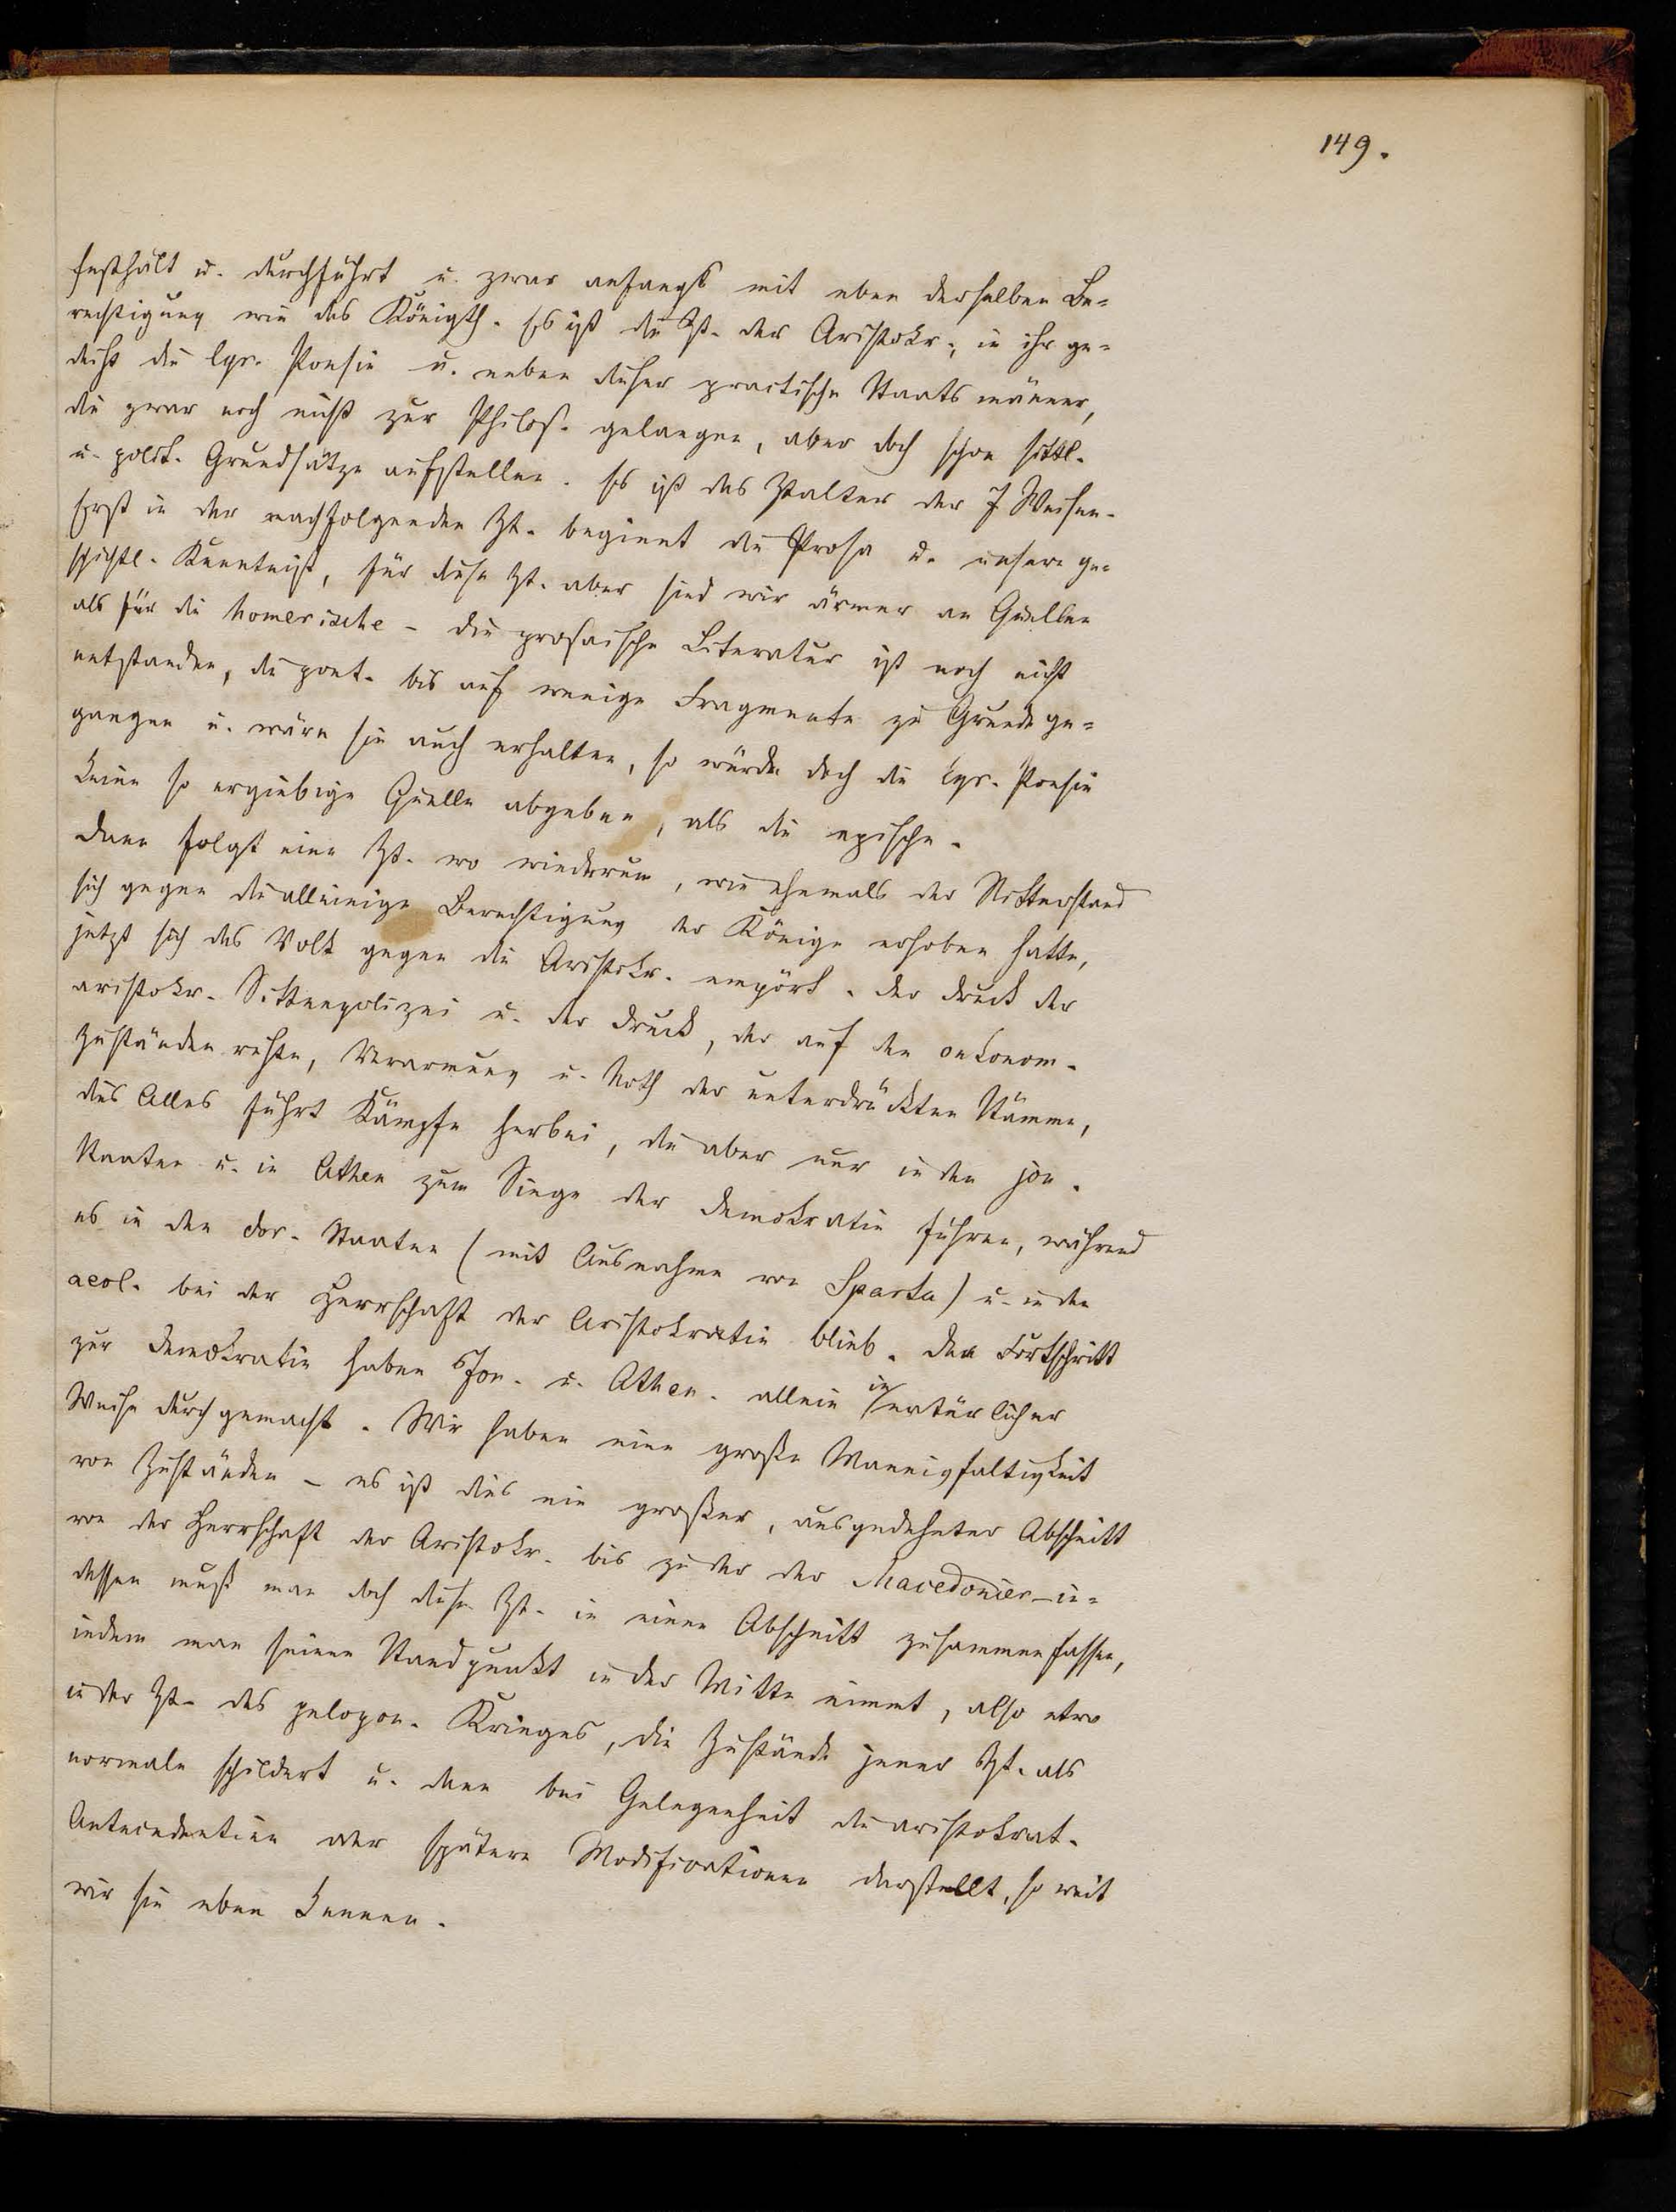 149.
festhält u. durchführt u. zwar anfangs mit eben derselben Be-
rechtigung wie das Königth. Es ist die Zt. der Aristokr., in ihr ge-
deiht die lyr. Poesie u. neben dieser practische Staatsmänner,
die zwar noch nicht zur Philos. gelangen, aber doch schon sittl.
u. polit. Grundsätze aufstellen. Es ist das Ztalter der 7 Weisen.
Erst in der nachfolgenden Zt. beginnt die Prosa u. unsere ge-
schichtl. Kenntniß, für diese Zt. aber sind wir ärmer an Quellen
als für die homerische – die prosaische Literatur ist noch nicht
entstanden, die poet. bis auf wenige Fragmente zu Grunde ge-
gangen u. wäre sie auch erhalten, so würde doch die lyr. Poesie
keine so ergiebige Quelle abgeben, als die epische.
Dann folgt eine Zt. wo wiederum, wie ehemals der Ritterstand
sich gegen die alleinige Berechtigung der Könige erhoben hatte,
jetzt sich das Volk gegen die Aristokr. empört. Der Druck der
aristokr. Sittenpolizei u. der Druck, der auf den oekonom.
Zuständen ruhte, Verarmung u. Noth der unterdrückten Stämme,
dies Alles führt Kämpfe herbei, die aber nur in den jon.
Staaten u. in Athen zum Siege der Demokratie führen, während
es in den dor. Staaten (mit Ausnahme von Sparta) u. in den
aeol. bei der Herrschaft der Aristokratie blieb. Den Fortschritt
zur Demokratie haben Jon. u. Athen. allein in natürlicher
Weise durchgemacht. Wir haben eine große Mannigfaltigkeit
von Zuständen – es ist dies ein großer, ausgedehnter Abschnitt
von der Herrschaft der Aristokr. bis zu der der Macedonier – in-
dessen muß man doch diese Zt. in einen Abschnitt zusammenfassen,
indem man seinen Standpunkt in der Mitte nimmt, also etwa
in der Zt. des pelopon. Krieges, die Zustände jener Zt. als
normale schildert u. dann bei Gelegenheit die aristokrat.
Antecedentien oder spätere Modificationen darstellt, so weit
wir sie eben kennen.